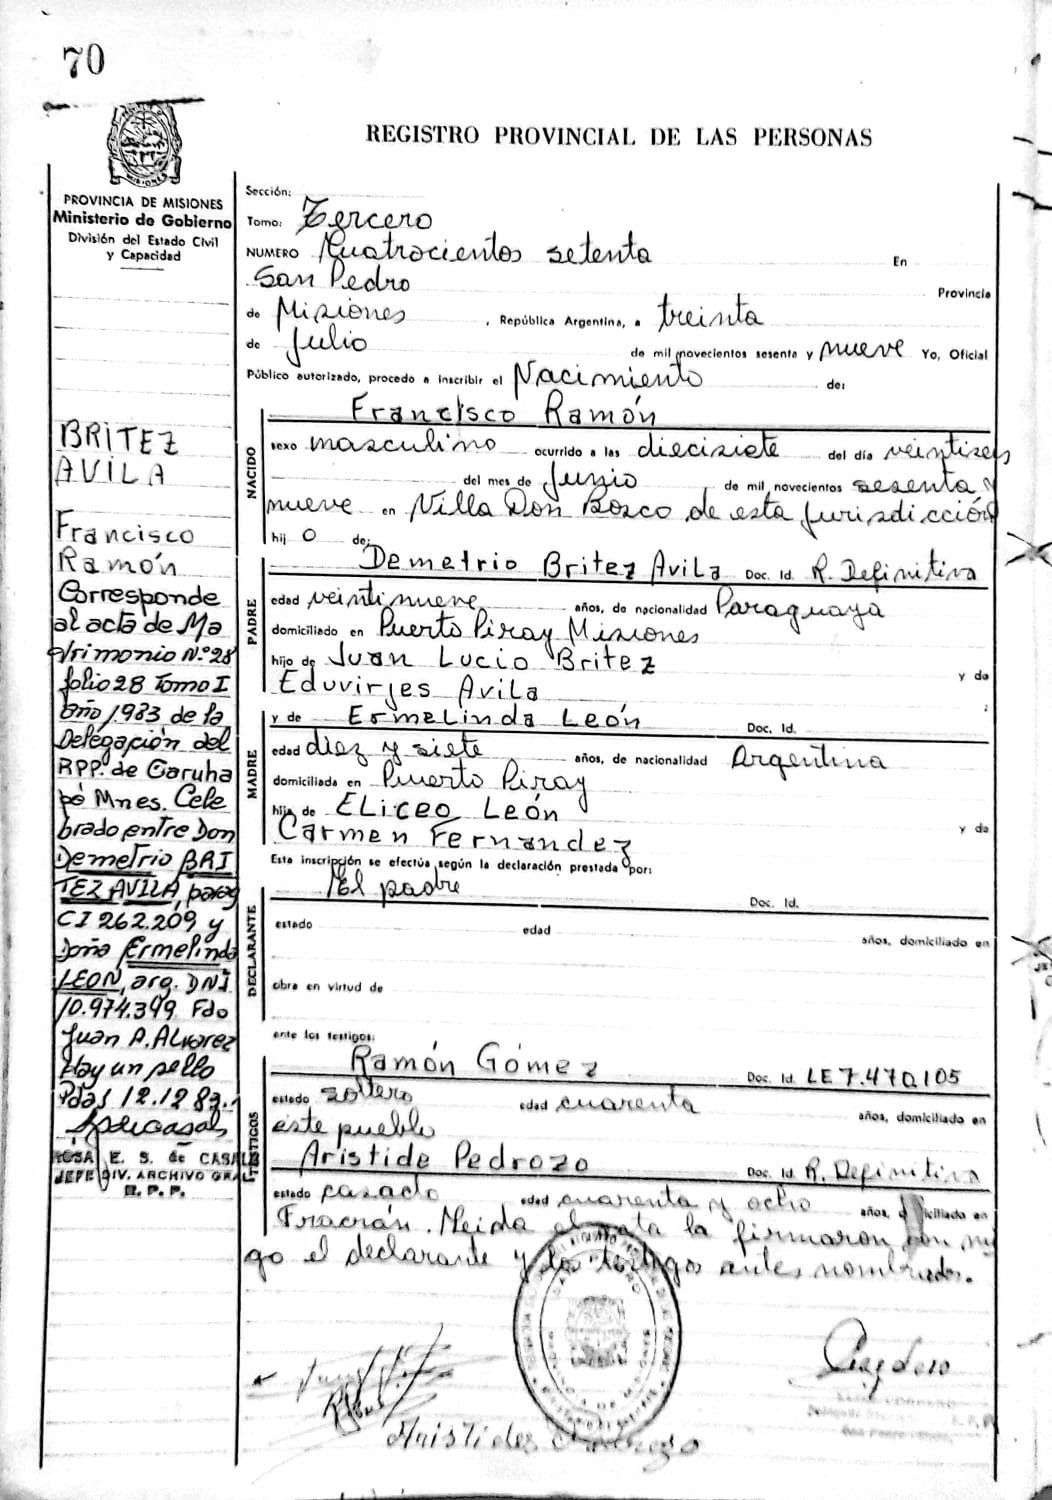 70
REGISTRO PROVINCIAL DE LAS PERSONAS
MISIONES
PROVINCIA DE MISIONES
Ministerio de Gobierno
División del Estado Civil
y Capacidad
BRITEZ
AVILA
Francisco
Ramón
Corresponde
al acta de Ma
trimonio N.º 28
folio 28 Tomo I
año 1983 de la
Delegación del
RPP. de Garuha
pé Mnes. Cele
brado entre Don
Demetrio BRI
TEZ AVILA, parag
CI 262.209 y
Doña Ermelinda
LEON, arg. DNI
10.974.399 Fdo
Juan A. Alvarez
Hay un sello
Pdas 12.12.83.
ROSA E. S. de CASALS
JEFE DIV. ARCHIVO GRAL
R. P. P.
Sección:
Tomo: Tercero
NUMERO Cuatrocientos setenta En
San Pedro Provincia
de Misiones , República Argentina, a treinta
de Julio de mil novecientos sesenta y nueve Yo, Oficial
Público autorizado, procedo a inscribir el Nacimiento de:
NACIDO
Francisco Ramón
sexo masculino ocurrido a las diecisiete del día veintiseis
del mes de Junio de mil novecientos sesenta y
nueve en Villa Don Bosco de esta jurisdicción
hij o de:
PADRE
Demetrio Britez Avila Doc. Id. R. Definitiva
edad veintinueve años, de nacionalidad Paraguaya
domiciliado en Puerto Piray Misiones
hijo de Juan Lucio Britez y de
Eduvirjes Avila ;
MADRE
y de Ermelinda León Doc. Id.
edad diez y siete años, de nacionalidad Argentina
domiciliada en Puerto Piray
hija de Eliceo León y de
Carmen Fernandez
Esta inscripción se efectúa según la declaración prestada por:
DECLARANTE
El padre Doc. Id.
estado edad años, domiciliado en
obra en virtud de
ante los testigos:
TESTIGOS
Ramón Gómez Doc. Id. LE 7.470.105
estado soltero edad cuarenta años, domiciliado en
este pueblo
Aristide Pedrozo Doc. Id. R. Definitiva
estado casado edad cuarenta y ocho años, domiciliado en
Fracrán. Leida el acta la firmaron con mi
go el declarante y los testigos antes nombrados.